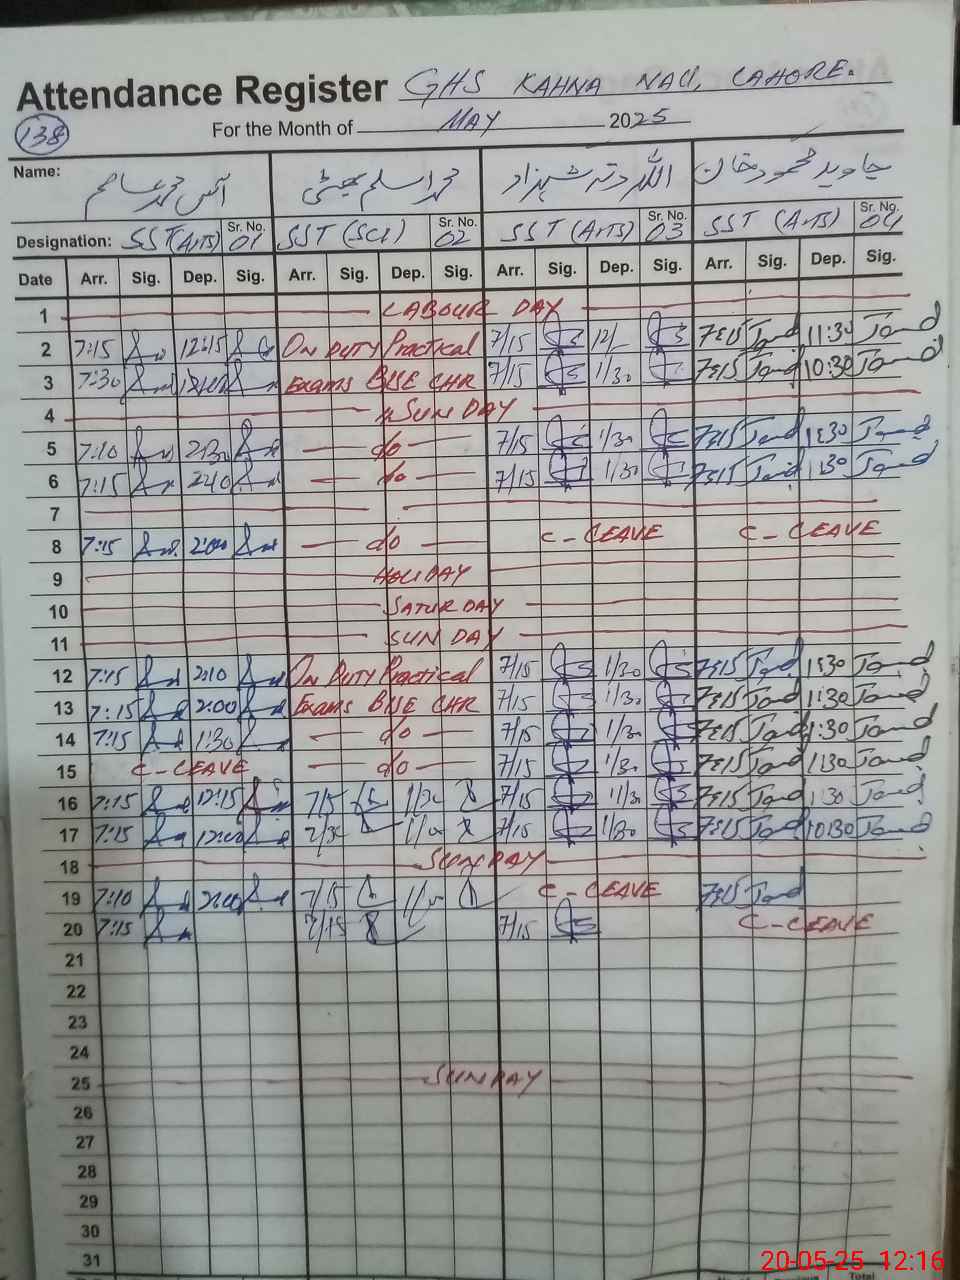 Attendance Register GHS KAHNA NAU, LAHORE.
138
For the Month of MAY 2025
Name: محمد اسلم بھٹی اللہ دتہ شہزاد جاوید محمود خان
Designation: SST (Arts) Sr. No. 01 SST (Sci) Sr. No. 02 SST (Arts) Sr. No. 03 SST (Arts) Sr. No. 04
Date Arr. Sig. Dep. Sig. Arr. Sig. Dep. Sig. Arr. Sig. Dep. Sig. Arr. Sig. Dep. Sig.
1 LABOUR DAY
2 7:15 12:15 On DUTY Practical 7/15 12/ 7:15 11:30
3 7:30 Exams BISE LHR 7/15 1/30 7:15 10:30
4 SUNDAY
5 7:10 2:30 do 7/15 1/30 7:15 1:30
6 7:15 2:40 do 7/15 1/30 7:15 1:30
7
8 7:15 2:00 do C-LEAVE C-LEAVE
9 HOLIDAY
10 SATURDAY
11 SUNDAY
12 7:15 2:10 On DUTY Practical 7/15 1/30 7:15 1:30
13 7:15 2:00 Exams BISE LHR 7/15 1/30 7:15 1:30
14 7:15 1:30 do 7/15 1/30 7:15 1:30
15 C-LEAVE do 7/15 1/30 7:15 1:30
16 7:15 12:15 7/15 1/30 7:15 1:30
17 7:15 12:00 7/15 1/30 7:15 10:30
18 SUNDAY
19 7:10 2:00 7/15 C-LEAVE 7:15
20 7:15 7/15 7/15 C-LEAVE
21
22
23
24
25 SUNDAY
26
27
28
29
30
31
20-05-25 12:16